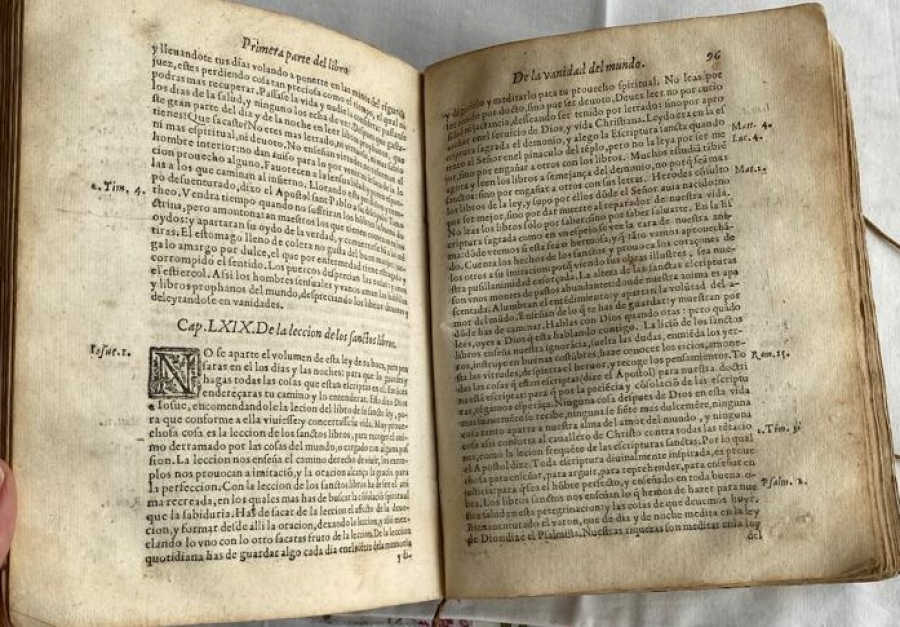 Primera parte del libro
y lleuandote tus dias volando a ponerte en las manos del riguroso
juez, estes perdiendo cosa tan preciosa como el tiempo, el qual no
podras mas recuperar. Passase la vida y nadie lo considera: passanse
los dias de la salud, y ninguno los echa de ver. Despues que gastaste
gran parte del dia y de la noche en leer libros prophanos, que
tienes? Que sacaste? No eres mas letrado, ni
ni mas espiritual, ni deuoto. No enseñan virtudes, no reforman el
hombre interior: no dan auiso para lo por venir, ni
cion prouecho alguno. Fauorecen a la sensualidad
las a los que caminan al infierno. Llorando este perdimiento
po desuenturado, dixo el Apostol sant Pablo a su discipulo Timo-
2. Tim. 4. theo. Vendra tiempo quando no suffriran los hombres la sana do-
ctrina, pero amontonaran maestros los que tienen comezon en los
oydos: y apartaran su oydo de la verdad, y conuertirse han a las men-
tiras. El estomago lleno de colera no gusta del buen manjar, juz-
galo amargo por dulce, el que por enfermedad tiene estragado y
corrompido el sentido. Los puercos desprecian las rosas y aman
el estiercol. Assi los hombres sensuales y vanos aman las fabulas
y libros prophanos del mundo, despreciando los libros diuinos y
deleytandose en vanidades.
Cap. LXIX. De la leccion de los sanctos libros.
Iosue. 1. NO se aparte el volumen de esta ley de tu boca, pero pen-
saras en el los dias y las noches: para que la guardes y
hagas todas las cosas que estan escriptas en el. Entonces
endereçaras tu camino y lo entenderas. Esto dixo Dios
a Iosue, encomendandole la lecion del libro de su sancta ley, pa-
ra que conforme a ella viuiesse y concertasse su vida. Muy proue-
chosa cosa es la leccion de los sanctos libros, para recoger el ani-
mo derramado por las cosas del mundo, o cargado con alguna pas-
sion. La leccion nos enseña el camino derecho de viuir, los exem-
plos nos prouocan a imitació, y la oracion alcança la gracia para
la perfeccion. Con la leccion de los sanctos libros ha de ser el ani-
ma recreada, en los quales mas has de buscar la cósolació spiritual
que la sabiduria. Has de sacar de la leccion el afecto de la deuo-
cion, y formar desde alli la oracion, dexando la leccion, y assi mez-
clando lo vno con lo otro sacaras fruto de la leccion. De la leccion
quotidiana has de guardar algo cada dia enel vientre dela memoria
y di-
De la vanidad del mundo. 96
y digerirlo y meditarlo para tu prouecho spiritual. No leas por
ser tenido por docto, sino por ser deuoto. Deues leer no por curio
sidad ni jactancia, desseando ser tenido por letrado: sino por apro
uechar enel seruicio de Dios, y vida Christiana. Leydo era en la es
criptura sagrada el demonio, y alego la Escriptura sancta quando Matt. 4.
tento al Señor enel pinaculo del téplo, pero no la leya por ser me Luc. 4.
jor, sino por engañar a otros con los libros. Muchos estudiá tábié
agora y leen los libros a semejança del demonio, no porq̃ seá mas
sanctos: sino por engañar a otros con sus letras. Herodes cósulto Mat. 2.
los libros de la ley, y supo por ellos dóde el Señor auia nacido: no
por ser mejor, sino por dar muerte al reparador de nuestra vida.
No leas los libros solo por saber: sino por saber saluarte. En la Es
criptura sagrada como en vn espejo se vee la cara de nuestra ani-
ma: dóde veemos si esta fea o hermosa, y q̃ táto vamos aprouechá-
do. Cuenta los hechos de los sanctos, y prouoca los coraçones de
los otros a su imitacion: potq̃ viendo sus obras illustres, sea nue-
stra pusillanimidad esforçada. La alteza de las sanctas escripturas
son vnos montes de pastos abundantes: donde nuestra anima es apa
scentada. Alumbran el entédimiento: y apartan la volútad del a-
mor del mũdo. Enseñan de lo q̃ te has de guardar: y muestran por
dóde has de caminar. Hablas con Dios quando oras: pero quádo
lees, oyer a Dios q̃ esta hablando contigo. La lició de los sanctos
libros enseña nuestra ignorácia, suelta las dudas, enmiéda los yer-
ros, instruye en buenas costúbres, haze conoscer los vicios, amone-
sta las virtudes, despierta el heruor, y recoge los pensamientos. To Rom. 15.
das las cosas q̃ estan escriptas (dize el Apostol) para nuestra doctri
na está escriptas: para q̃ por la paciécia y cósolació de las escriptu
ras, tégamos esperáça. Ninguna cosa despues de Dios en esta vida
mas suauemére se recibe, ninguna se siéte mas dulceméte, ninguna
cosa tanto aparta a nuestra alma del amor del mundo, y ninguna
cosa assi conforta al cauallero de Christo contra todas las tétacio
nes, como la leccion frequéte de las escripturas sanctas. Por lo qual 2. Tim. 3.
el Apostol dize. Toda escriptura diuinalmente inspirada, es proue
chosa para enseñar, para arguir, para reprehender, para enseñar en
justicia: para q̃ sea el hóbre perfecto, y enseñado en toda buena o-
bra. Los libros sanctos nos enseñan lo q̃ hemos de hazer para nue Psalm. 1.
stra salud en esta peregrinacion: y las cosas de que deuemos huyr.
Bienauenturado el varon, que de dia y de noche medita en la ley
de Dios: dize el Psalmista. Nuestras riquezas son meditar en la ley
del